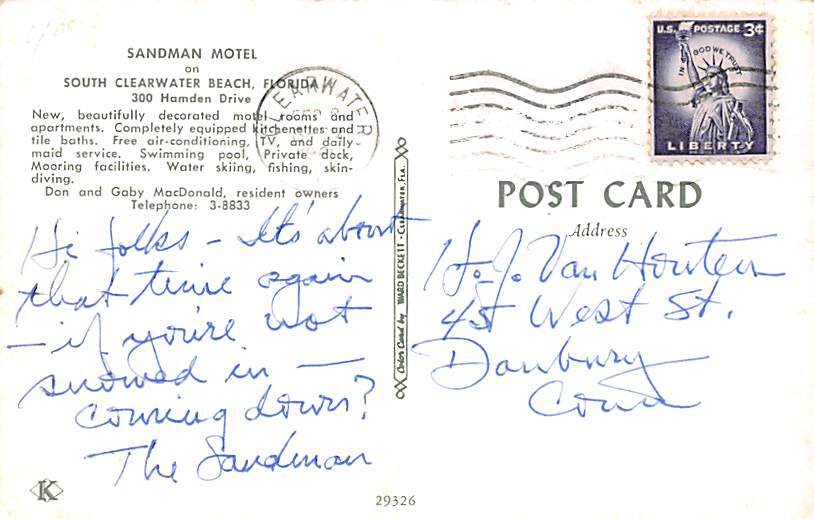 SANDMAN MOTEL
on
SOUTH CLEARWATER BEACH, FLORIDA
300 Hamden Drive
New, beautifully decorated motel rooms and
apartments. Completely equipped kitchenettes and
tile baths. Free air-conditioning, TV, and daily
maid service. Swimming pool, Private dock,
Mooring facilities. Water skiing, fishing, skin-
diving.
Don and Gaby MacDonald, resident owners
Telephone: 3-8833
Hi folks – It's about
that time again
– if you're not
snowed in –
coming down?
The Sandman
K
CLEARWATER
Color Card by WARD BECKETT - Clearwater, Fla.
29326
U.S. POSTAGE 3¢
IN GOD WE TRUST
LIBERTY
POST CARD
Address
H. J. Van Houten
45 West St.
Danbury
Conn